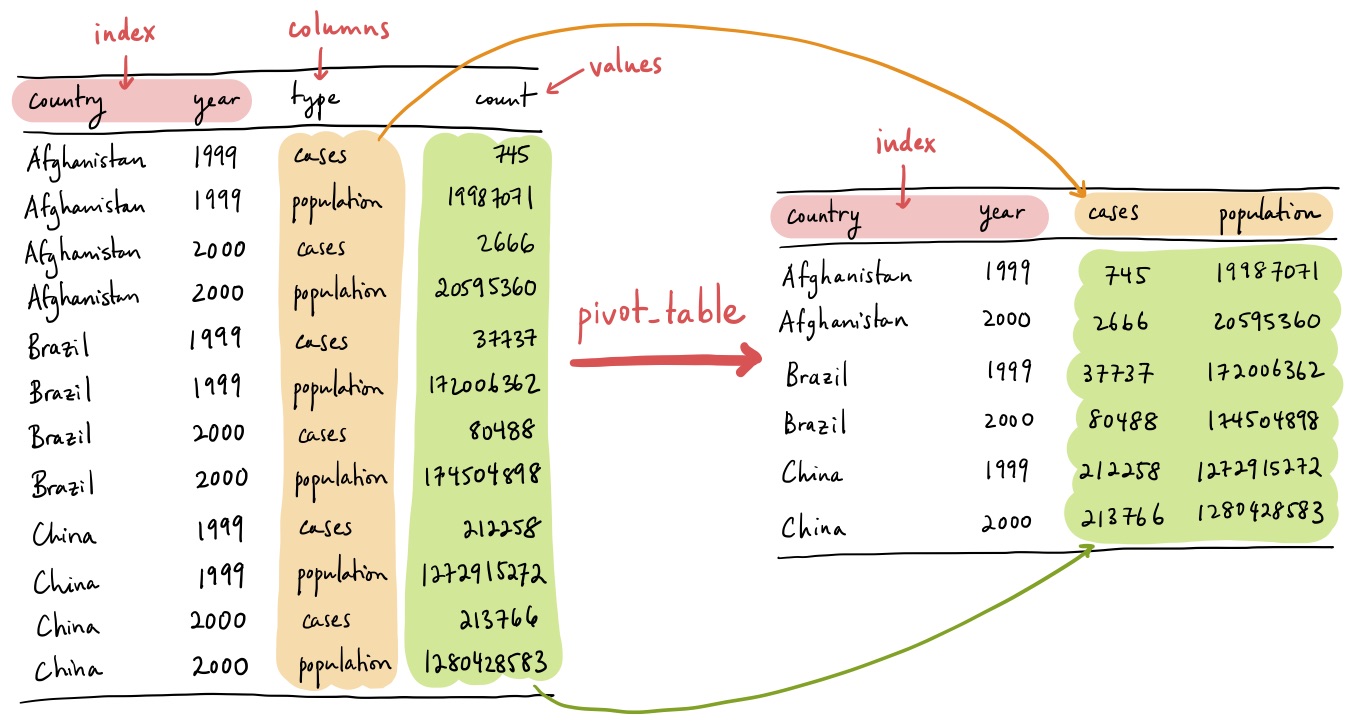 index
columns
values
country year type count
Afghanistan 1999 cases 745
Afghanistan 1999 population 19987071
Afghanistan 2000 cases 2666
Afghanistan 2000 population 20595360
Brazil 1999 cases 37737
Brazil 1999 population 172006362
Brazil 2000 cases 80488
Brazil 2000 population 174504898
China 1999 cases 212258
China 1999 population 1272915272
China 2000 cases 213766
China 2000 population 1280428583
pivot_table
index
country year cases population
Afghanistan 1999 745 19987071
Afghanistan 2000 2666 20595360
Brazil 1999 37737 172006362
Brazil 2000 80488 174504898
China 1999 212258 1272915272
China 2000 213766 1280428583